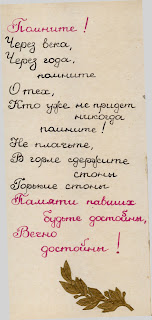 Помните!
Через века,
Через года,
помните
О тех,
Кто уже не придет
никогда
помните!
Не плачьте,
В горле сдержите
стоны
Горькие стоны
Памяти павших
будьте достойны,
Вечно
достойны!